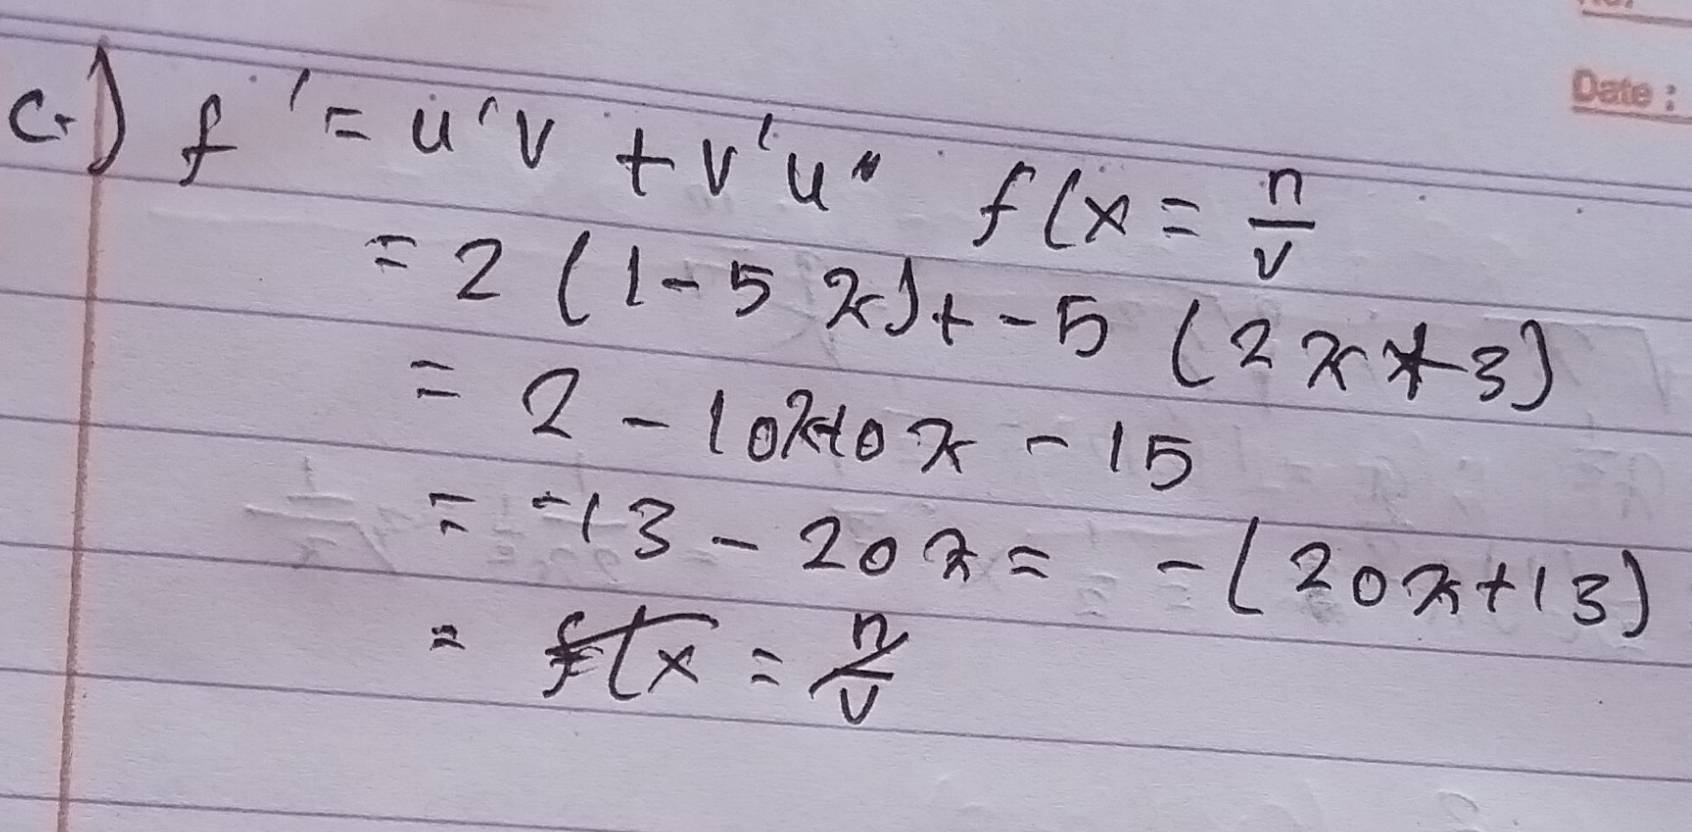 Date :
c.) f' = u'v + v'u" f(x = n/v
= 2 (1 - 5x) + - 5 (2x + 3)
= 2 - 10x - 10x - 15
= -13 - 20x = - (20x + 13)
= f(x = n/v